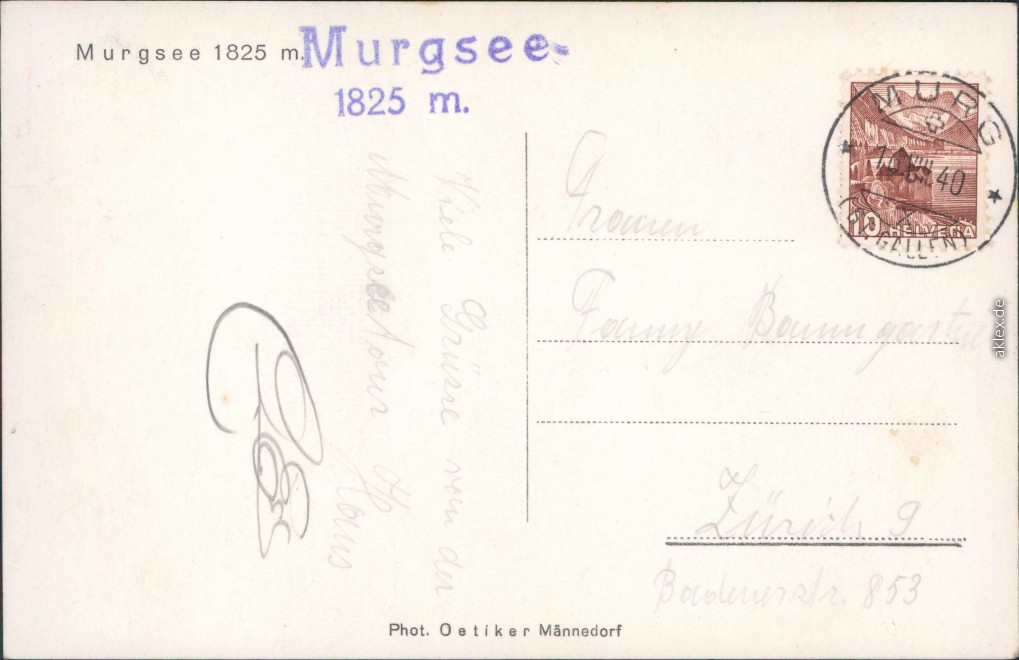 Murgsee 1825 m.
Murgsee
1825 m.
MURG
VIII.40
(ST. GALLEN)
10 HELVETIA
Viele Grüsse von der
Murgseetour Hans
Frauen
Fanny Baumgartner
Zürich 9
Badenerstr. 853
Phot. Oetiker Männedorf
aklex.de